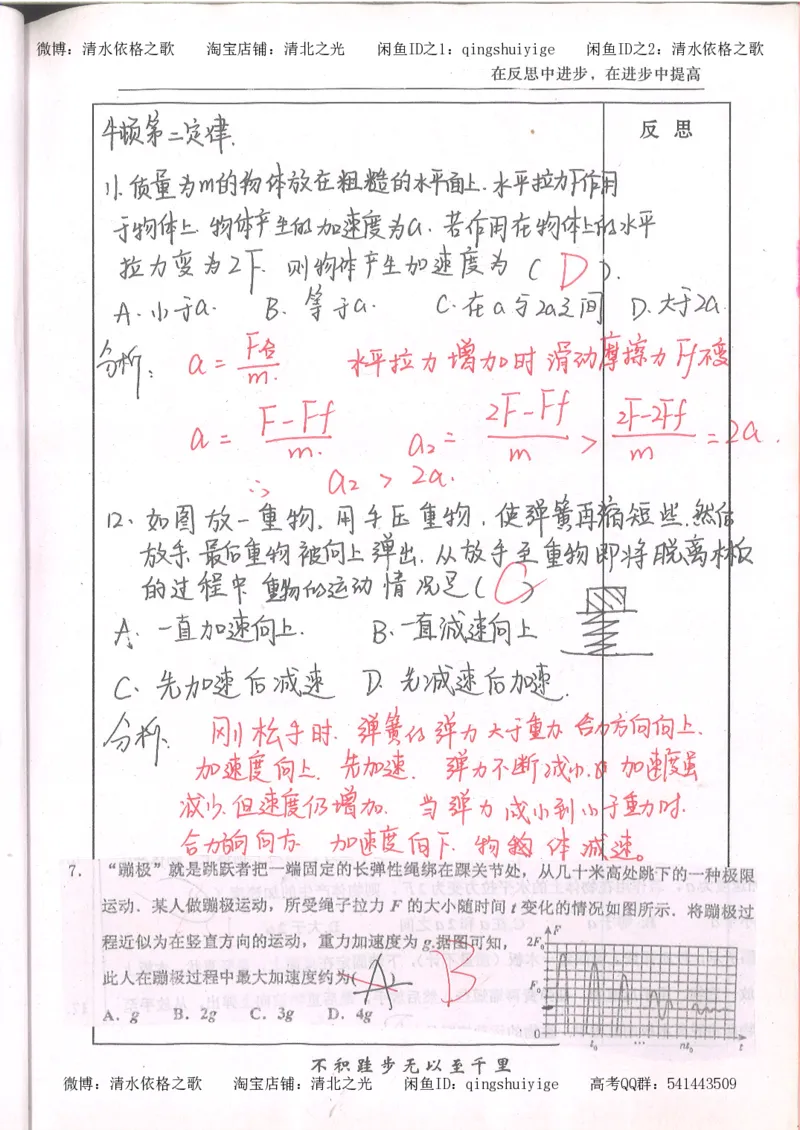 微博：清水依格之歌 淘宝店铺：清北之光 闲鱼ID之1：qingshuiyige 闲鱼ID之2：清水依格之歌
在反思中进步，在进步中提高
牛顿第二定律.
反思
11.质量为m的物体放在粗糙的水平面上.水平拉力F作用
于物体上.物体产生的加速度为a.若作用在物体上的水平
拉力变为2F.则物体产生加速度为(D).
A.小于a. B.等于a. C.在a与2a之间 D.大于2a.
分析: a=F合/m. 水平拉力增加时滑动摩擦力Ff不变
a=F-Ff/m. a₂=2F-Ff/m > 2F-2Ff/m =2a.
∴ a₂>2a.
12、如图放一重物.用手压重物.使弹簧再缩短些.然后
放手.最后重物被向上弹出.从放手至重物即将脱离木板
的过程中重物的运动情况是(C)
A.一直加速向上. B.一直减速向上
C、先加速后减速 D.先减速后加速.
分析: 刚松手时.弹簧的弹力大于重力 合力方向向上.
加速度向上.先加速.弹力不断减小. 加速度虽
减少.但速度仍增加.当弹力减小到小于重力时.
合力 向下 加速度向下.物 体减速。
7. “蹦极”就是跳跃者把一端固定的长弹性绳绑在踝关节处，从几十米高处跳下的一种极限
运动．某人做蹦极运动，所受绳子拉力 F 的大小随时间 t 变化的情况如图所示．将蹦极过
程近似为在竖直方向的运动，重力加速度为 g.据图可知，
此人在蹦极过程中最大加速度约为(A) B
A．g B．2g C．3g D．4g
F
2F₀
F₀
0
t₀ … nt₀ t
不积跬步无以至千里
微博：清水依格之歌 淘宝店铺：清北之光 闲鱼ID：qingshuiyige 高考QQ群：541443509